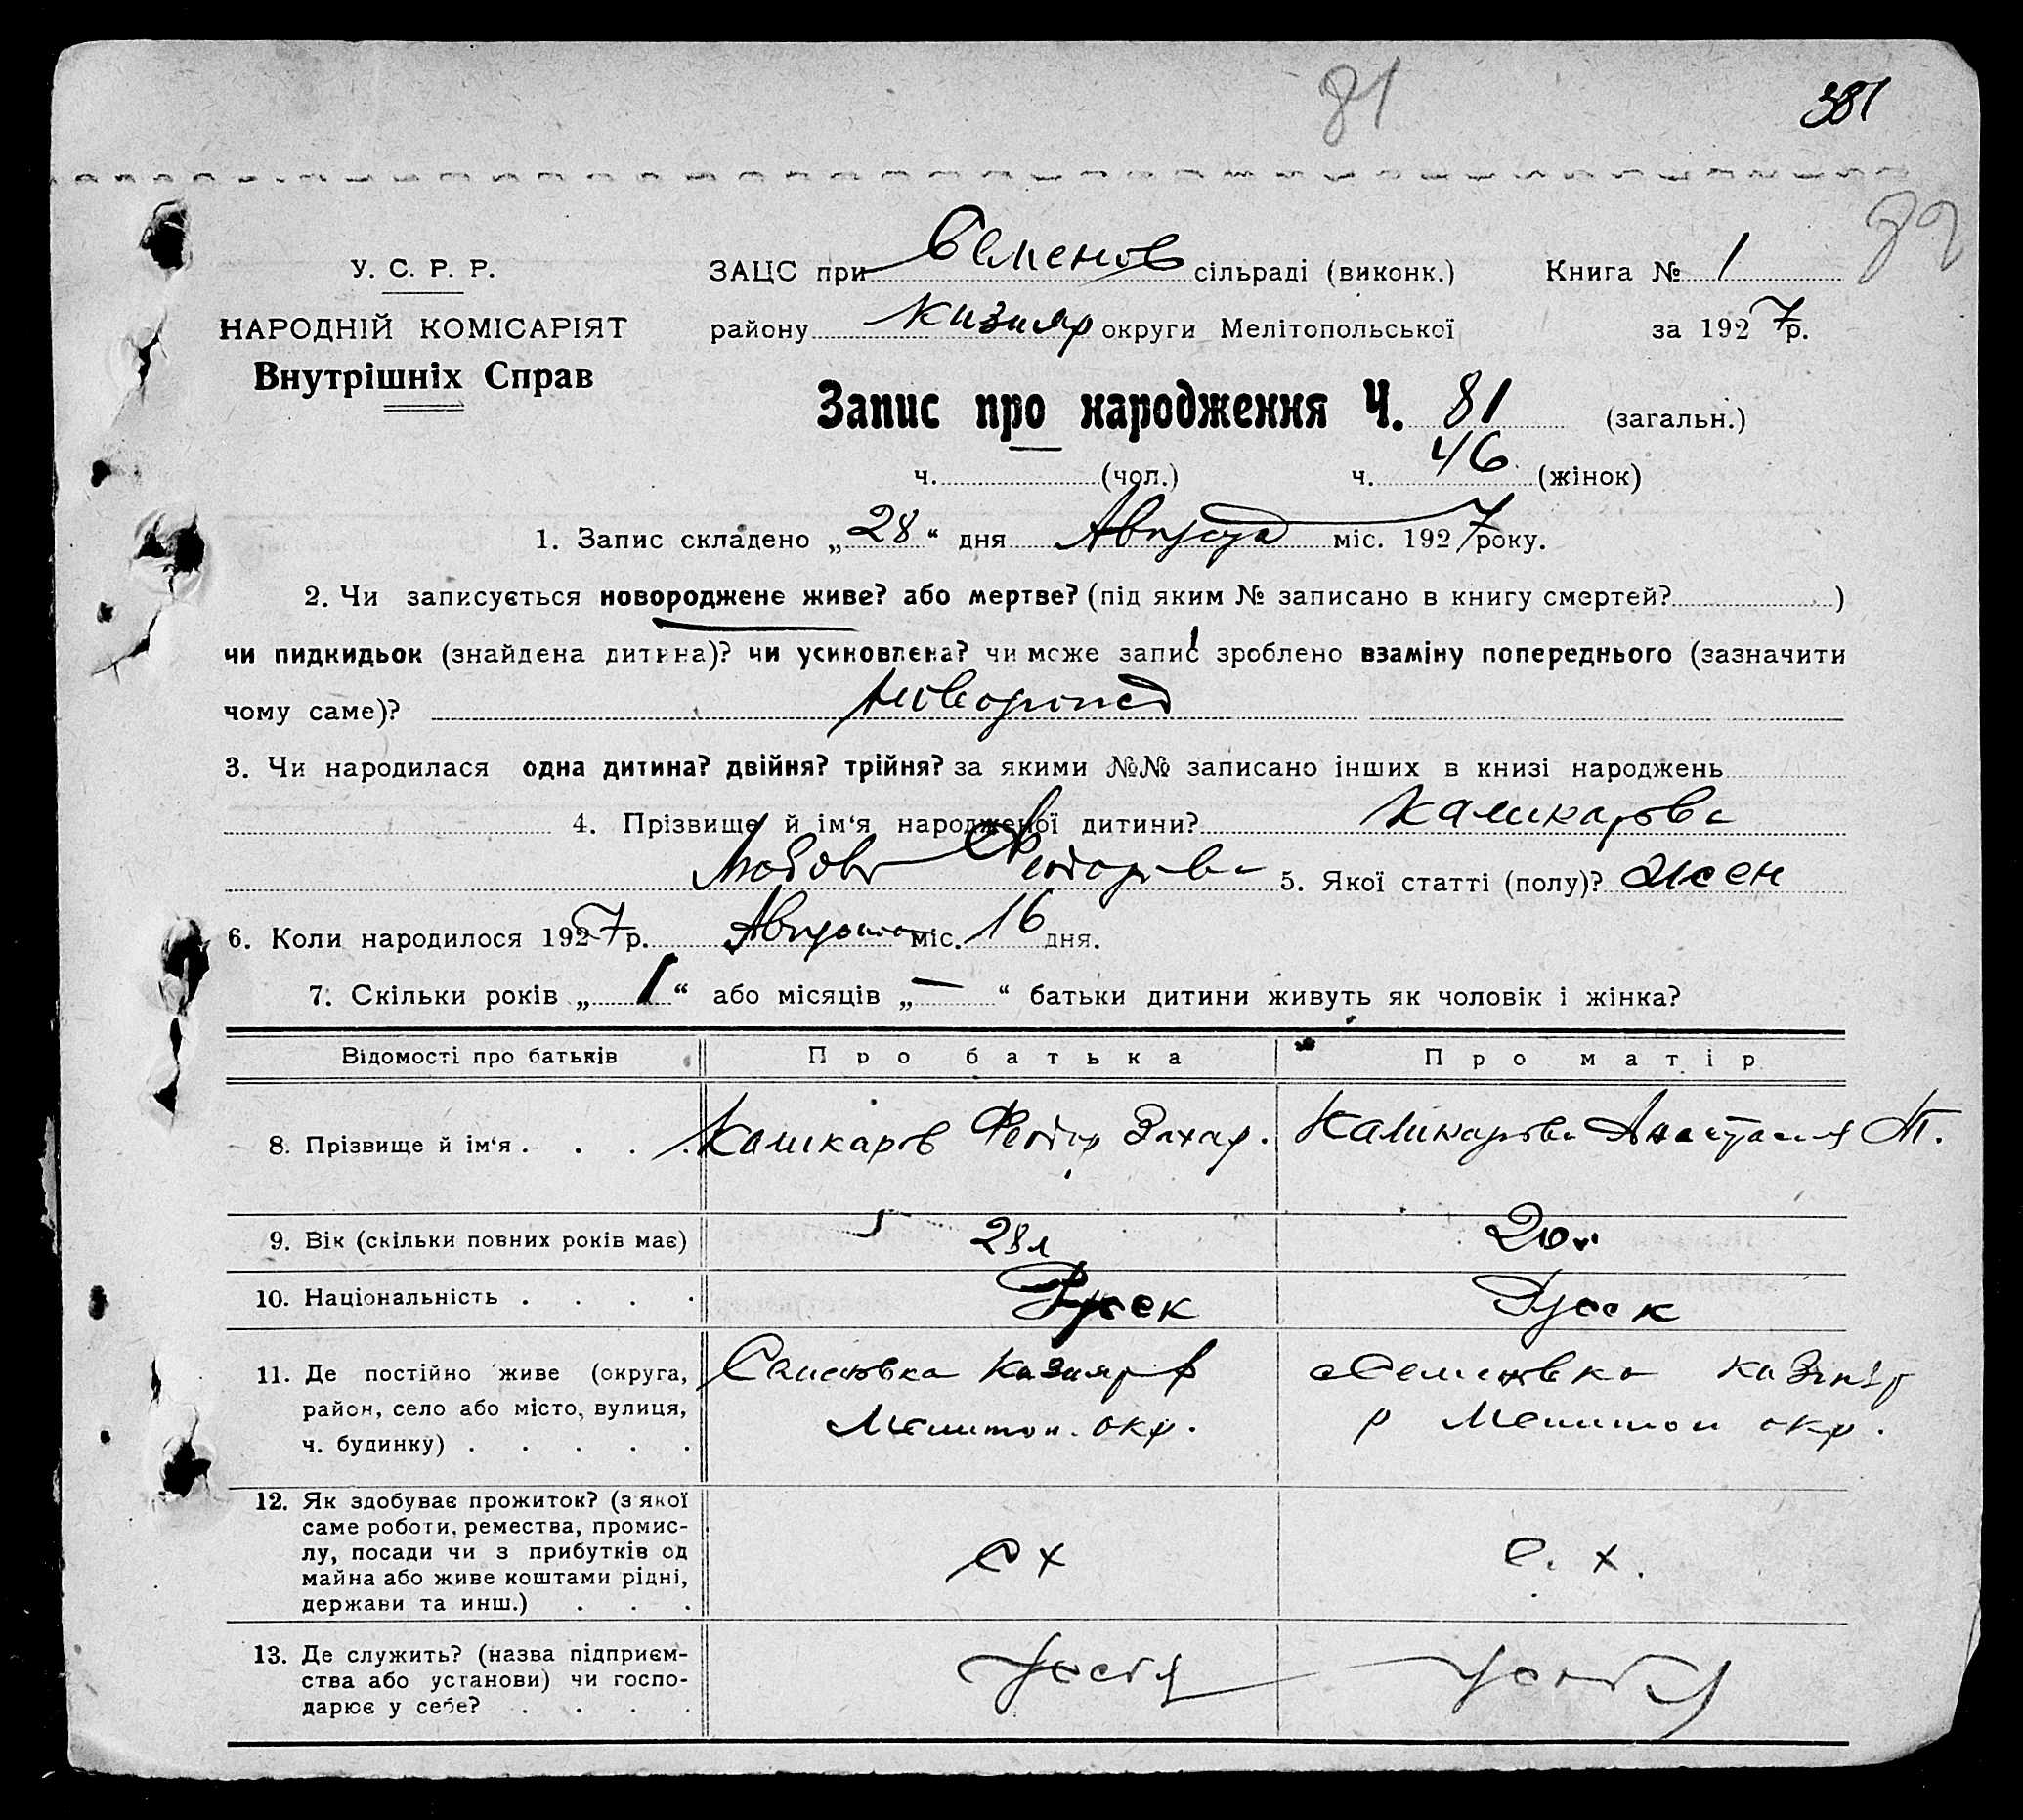 81
381
82
У. С. Р. Р.
НАРОДНІЙ КОМІСАРІЯТ
Внутрішніх Справ
ЗАЦС при Семенов сільраді (виконк.) Книга № 1
району Кизияр округи Мелітопольської за 1927 р.
Запис про народження Ч. 81 (загальн.)
ч. (чол.) ч. 46 (жінок)
1. Запис складено „28“ дня Августа міс. 1927 року.
2. Чи записується новороджене живе? або мертве? (під яким № записано в книгу смертей? )
чи пидкидьок (знайдена дитина)? чи усиновлена? чи може запис зроблено взаміну попереднього (зазначити
чому саме)?
3. Чи народилася одна дитина? двійня? трійня? за якими №№ записано інших в книзі народжень
4. Прізвище й ім‘я народженої дитини? Кашкарова
Любовь Федорова 5. Якої статті (полу)? жен
6. Коли народилося 1927 р. Августа міс. 16 дня.
7. Скільки років „1“ або місяців „—“ батьки дитини живуть як чоловік і жінка?
Відомості про батьків Про батька Про матір
8. Прізвище й ім‘я . . . . Кашкаров Федор Захар. Кашкарова Анастасия М.
9. Вік (скільки повних років має) 28 л 20 л
10. Національність . . . . Русск Русск
11. Де постійно живе (округа, Семеновка Кизияр р Семеновка Кизияр
район, село або місто, вулиця, Мелитоп. окр. р Мелитоп окр.
ч. будинку) . . . . .
12. Як здобуває прожиток? (з якої
саме роботи, ремества, промис-
лу, посади чи з прибутків од с х с. х.
майна або живе коштами рідні,
держави та инш.) . . .
13. Де служить? (назва підприєм-
ства або установи) чи госпо- у себя у себя
дарює у себе? . . . .